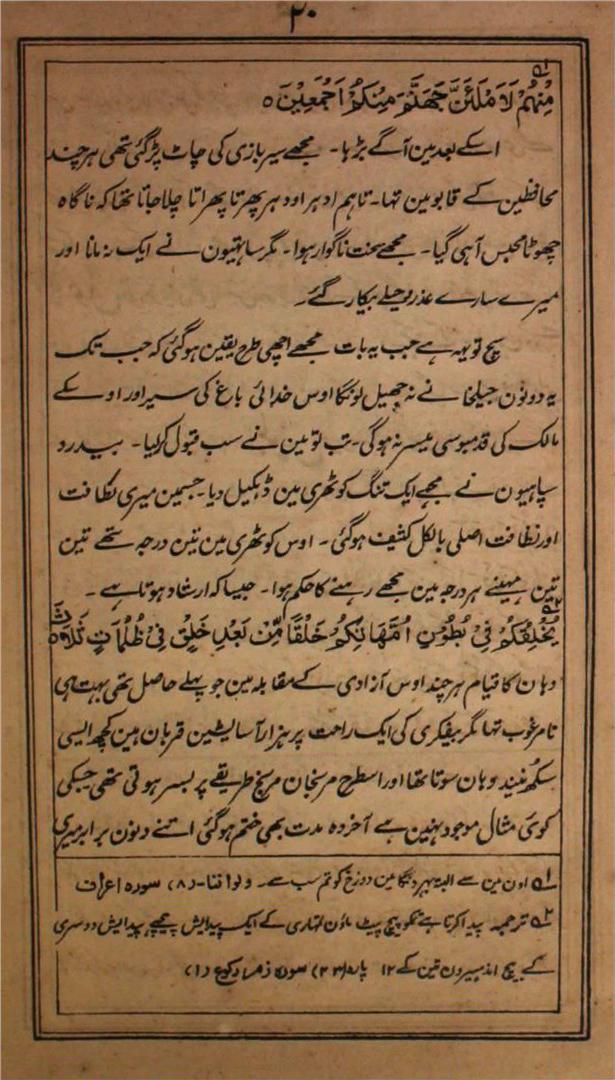 ۲۰
مِنْهُمْ لَاَمْلَئَنَّ جَهَنَّمَ مِنْكُمْ اَجْمَعِيْنَ ۱ہ
اسکے بعد مین آگے بڑہا۔ مجھے سیر بازی کی چاٹ پڑگئی تھی ہرچند
محافظین کے قابو مین تہا۔ تاہم ادہر اودہر پھرتا پھراتا چلا جاتا تھا کہ ناگاہ
چھوٹا محبس آہی گیا۔ مجھے سخت ناگوار ہوا۔ مگر ساہتیون نے ایک نہ مانا اور
میرے سارے عذر و حیلے بیکار گئے۔
سچ تو یہہ ہے جب یہ بات مجھے اچھی طرح یقین ہوگئی کہ جب تک
یہ دونون جیلخانے نہ جھیل لونگا اوس خدائی باغ کی سیر اور اوسکے
مالک کی قدمبوسی میسر نہ ہوگی۔ تب تو مین نے سب قبول کرلیا۔ بیدرد
سپاہیون نے مجھے ایک تنگ کوٹھری مین ڈہکیل دیا۔ جسمین میری لطافت
اور نظافت اصلی بالکل کثیف ہوگئی۔ اوس کوٹھری مین تین درجہ تھے تین
تین مہینے ہر درجہ مین مجھے رہنے کا حکم ہوا۔ جیسا کہ ارشاد ہوتا ہے۔
يَخْلُقُكُمْ فِيْ بُطُوْنِ اُمَّهَاتِكُمْ خَلْقًا مِّنْ بَعْدِ خَلْقٍ فِيْ ظُلُمَاتٍ ثَلَاثٍ ۲ہ
وہان کا قیام ہرچند اوس آزادی کے مقابلہ مین جو پہلے حاصل تھی بہت ہی
نامرغوب تہا مگر بیفکری کی ایک راحت پر ہزار آسایشین قربان ہین کچھ ایسی
سکھ نیند وہان سوتا تھا اور اسطرح مرنجان مرنج طریقے پر بسر ہوتی تھی جسکی
کوئی مثال موجود نہین ہے آخر وہ مدت بھی ختم ہوگئی اتنے دنون برابر میری
۱ہ اون مین سے البتہ بہر دنگا مین دوزخ کو تم سب سے۔ ولواننا۔ (۸) سورہ اعراف
۲ہ ترجمہ پیدا کرتا ہے تمکو بیچ پیٹ ماؤن تمہاری کے ایک پیدایش پیچھے پیدایش دوسری
کے بیچ اندہیرون تین کے ۱۲ پارہ (۲۳) سورہ زمر رکوع (۱)